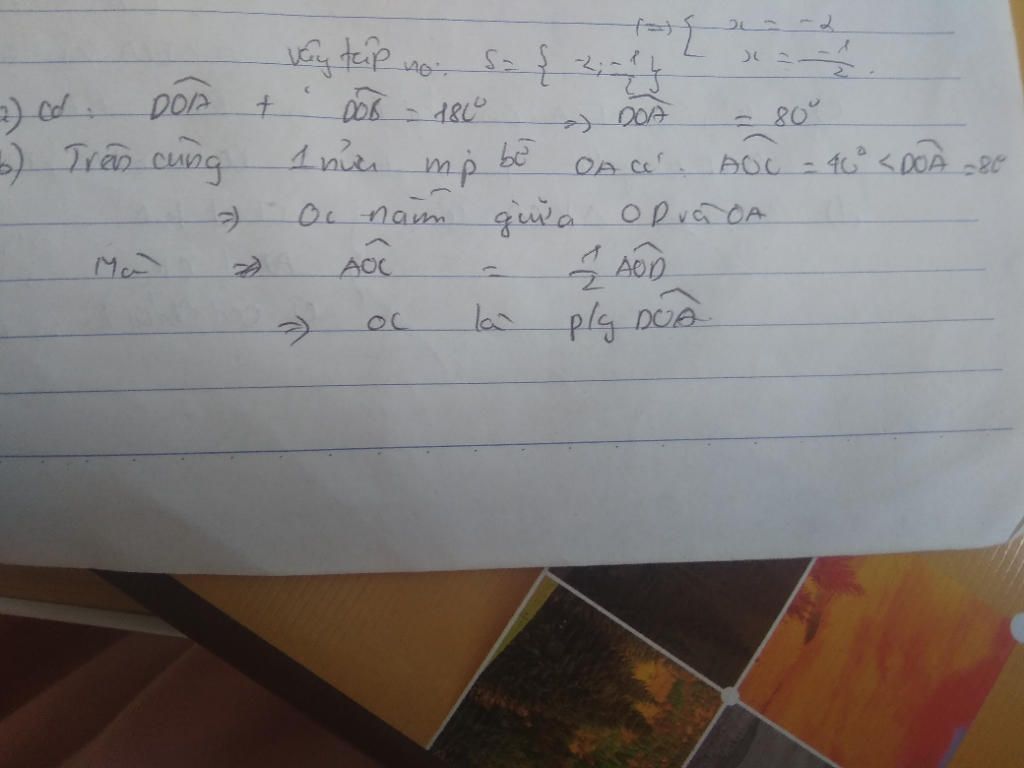 (=> { x = -2
x = -1/2.
Vậy tập no: S = { -2; -1/2 }
a) Có: DOA + DOB = 180° => DOA = 80°
b) Trên cùng 1 nửa mp bờ OA có: AOC = 40° < DOA = 80
=> OC nằm giữa OD và OA
Mà => AOC = 1/2 AOD
=> OC là p/g DOA.